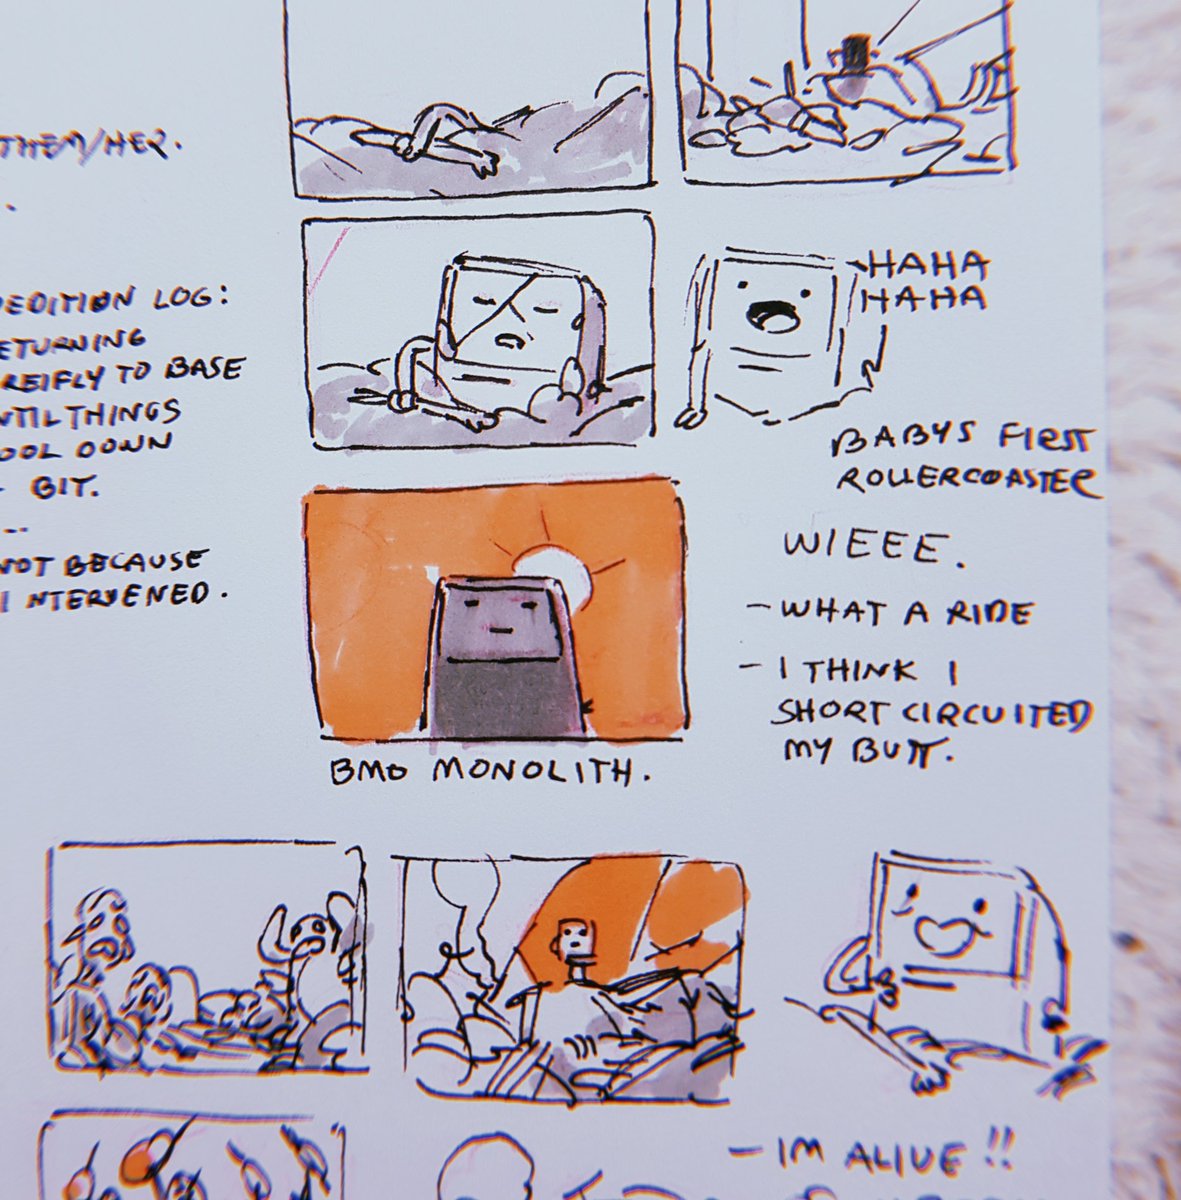 THEM/HER.
LOG:
TO BASE
THINGS
DOWN
BIT.
NOT BECAUSE
I INTERVENED.
HAHA
HAHA
BABYS FIRST
ROLLERCOASTER
WIEEE.
- WHAT A RIDE
- I THINK I
SHORT CIRCUITED
MY BUTT.
BMO MONOLITH.
- IM ALIVE !!